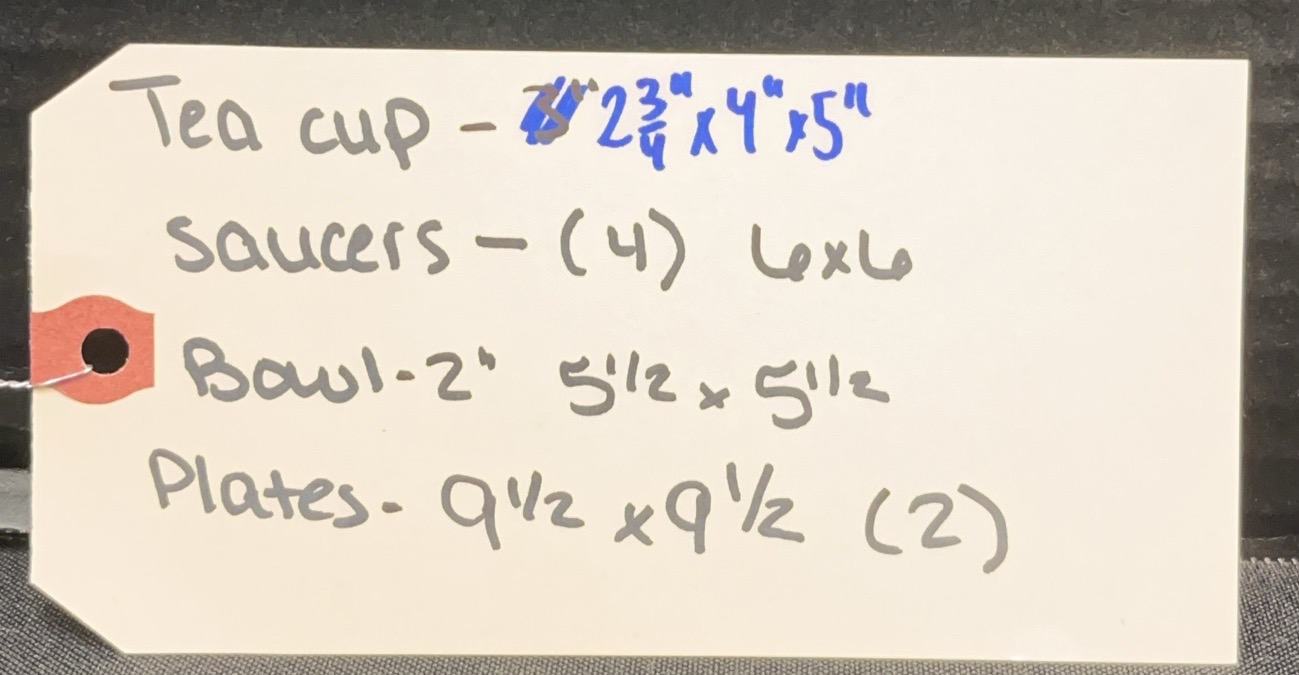 Tea cup - 2 3/4" x 4" x 5"
saucers - (4) 6x6
Bowl - 2" 5 1/2 x 5 1/2
Plates - 9 1/2 x 9 1/2 (2)